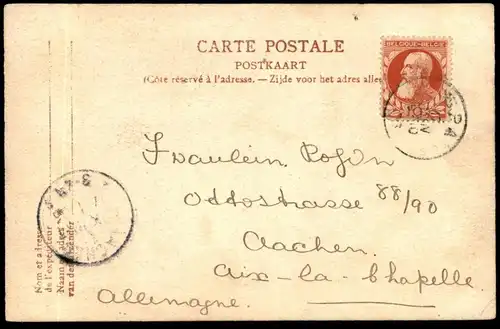 CARTE POSTALE
POSTKAART
(Côte réservé à l'adresse. — Zijde voor het adres alleen
BELGIQUE-BELGIË
Fraulein
Oddostrasse 88/90
Aachen
Aix-la-Chapelle
Allemagne.
Nom et adresse
de l'expéditeur
Naam en adres
van den afzender